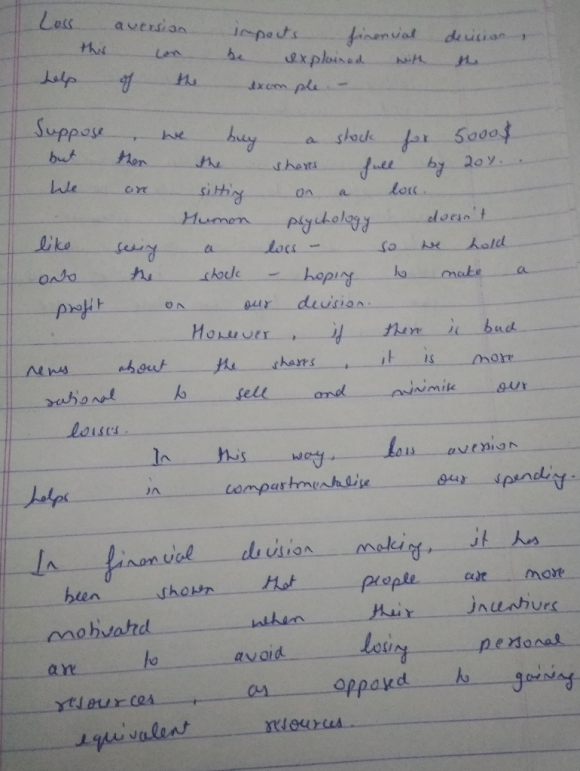 Loss aversion impacts financial decision,
this can be explained with the
help of the example. -
Suppose, we buy a stock for 5000$
but then the shares fall by 20%.
We are sitting on a loss.
Human psychology doesn't
like seeing a loss - so we hold
onto the stock - hoping to make a
profit on our decision.
However, if there is bad
news about the shares, it is more
rational to sell and minimise our
losses.
In this way, loss aversion
helps in compartmentalise our spending.
In financial decision making, it has
been shown that people are more
motivated when their incentives
are to avoid losing personal
resources, as opposed to gaining
equivalent resources.